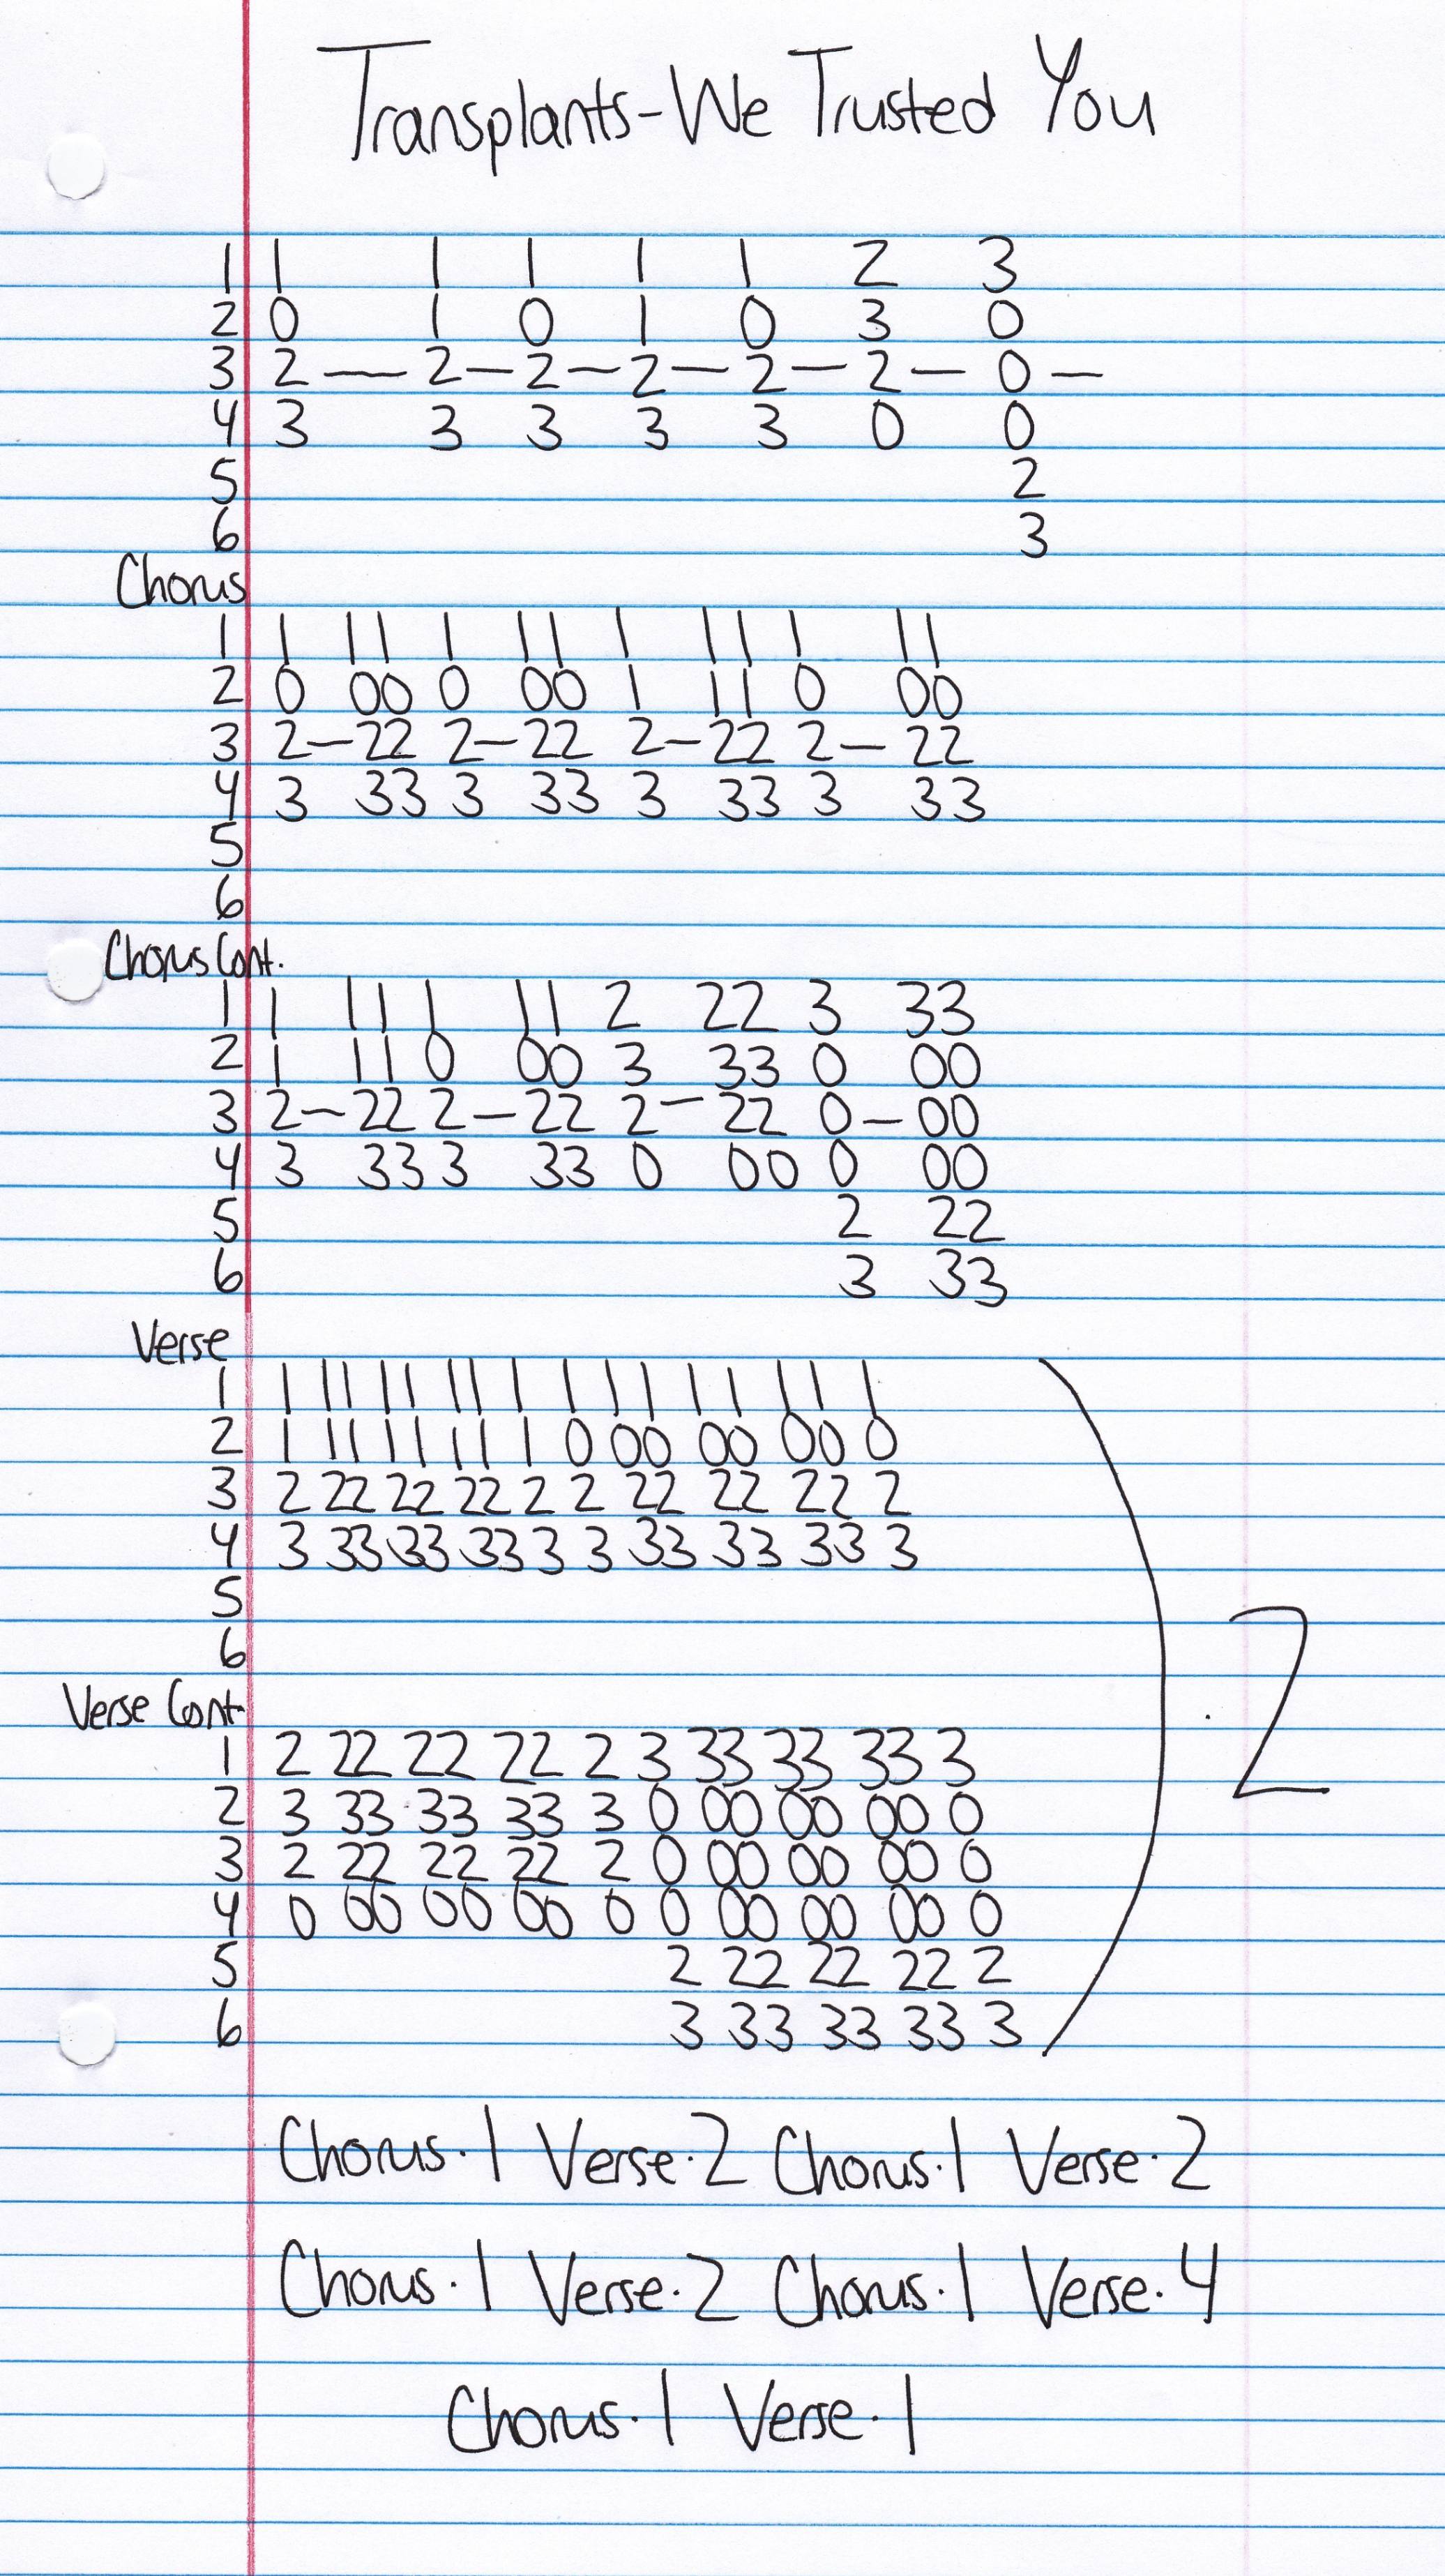 Transplants-We Trusted You
1 1 1 1 1 1 2 3
2 0 1 0 1 0 3 0
3 2 — 2 — 2 — 2 — 2 — 2 — 0 —
4 3 3 3 3 3 0 0
5 2
6 3
Chorus
1 1 11 1 11 1 11 1 11
2 0 00 0 00 1 11 0 00
3 2—22 2—22 2—22 2—22
4 3 33 3 33 3 33 3 33
5
6
Chorus Cont.
1 1 11 1 11 2 22 3 33
2 1 11 0 00 3 33 0 00
3 2—22 2—22 2—22 0—00
4 3 33 3 33 0 00 0 00
5 2 22
6 3 33
Verse
1 1 11 11 11 1 1 11 11 11 1
2 1 11 11 11 1 0 00 00 00 0
3 2 22 22 22 2 2 22 22 22 2
4 3 33 33 33 3 3 33 33 33 3
5
6
· 2
Verse Cont
1 2 22 22 22 2 3 33 33 33 3
2 3 33 33 33 3 0 00 00 00 0
3 2 22 22 22 2 0 00 00 00 0
4 0 00 00 00 0 0 00 00 00 0
5 2 22 22 22 2
6 3 33 33 33 3
Chorus·1 Verse·2 Chorus·1 Verse·2
Chorus·1 Verse·2 Chorus·1 Verse·4
Chorus·1 Verse·1